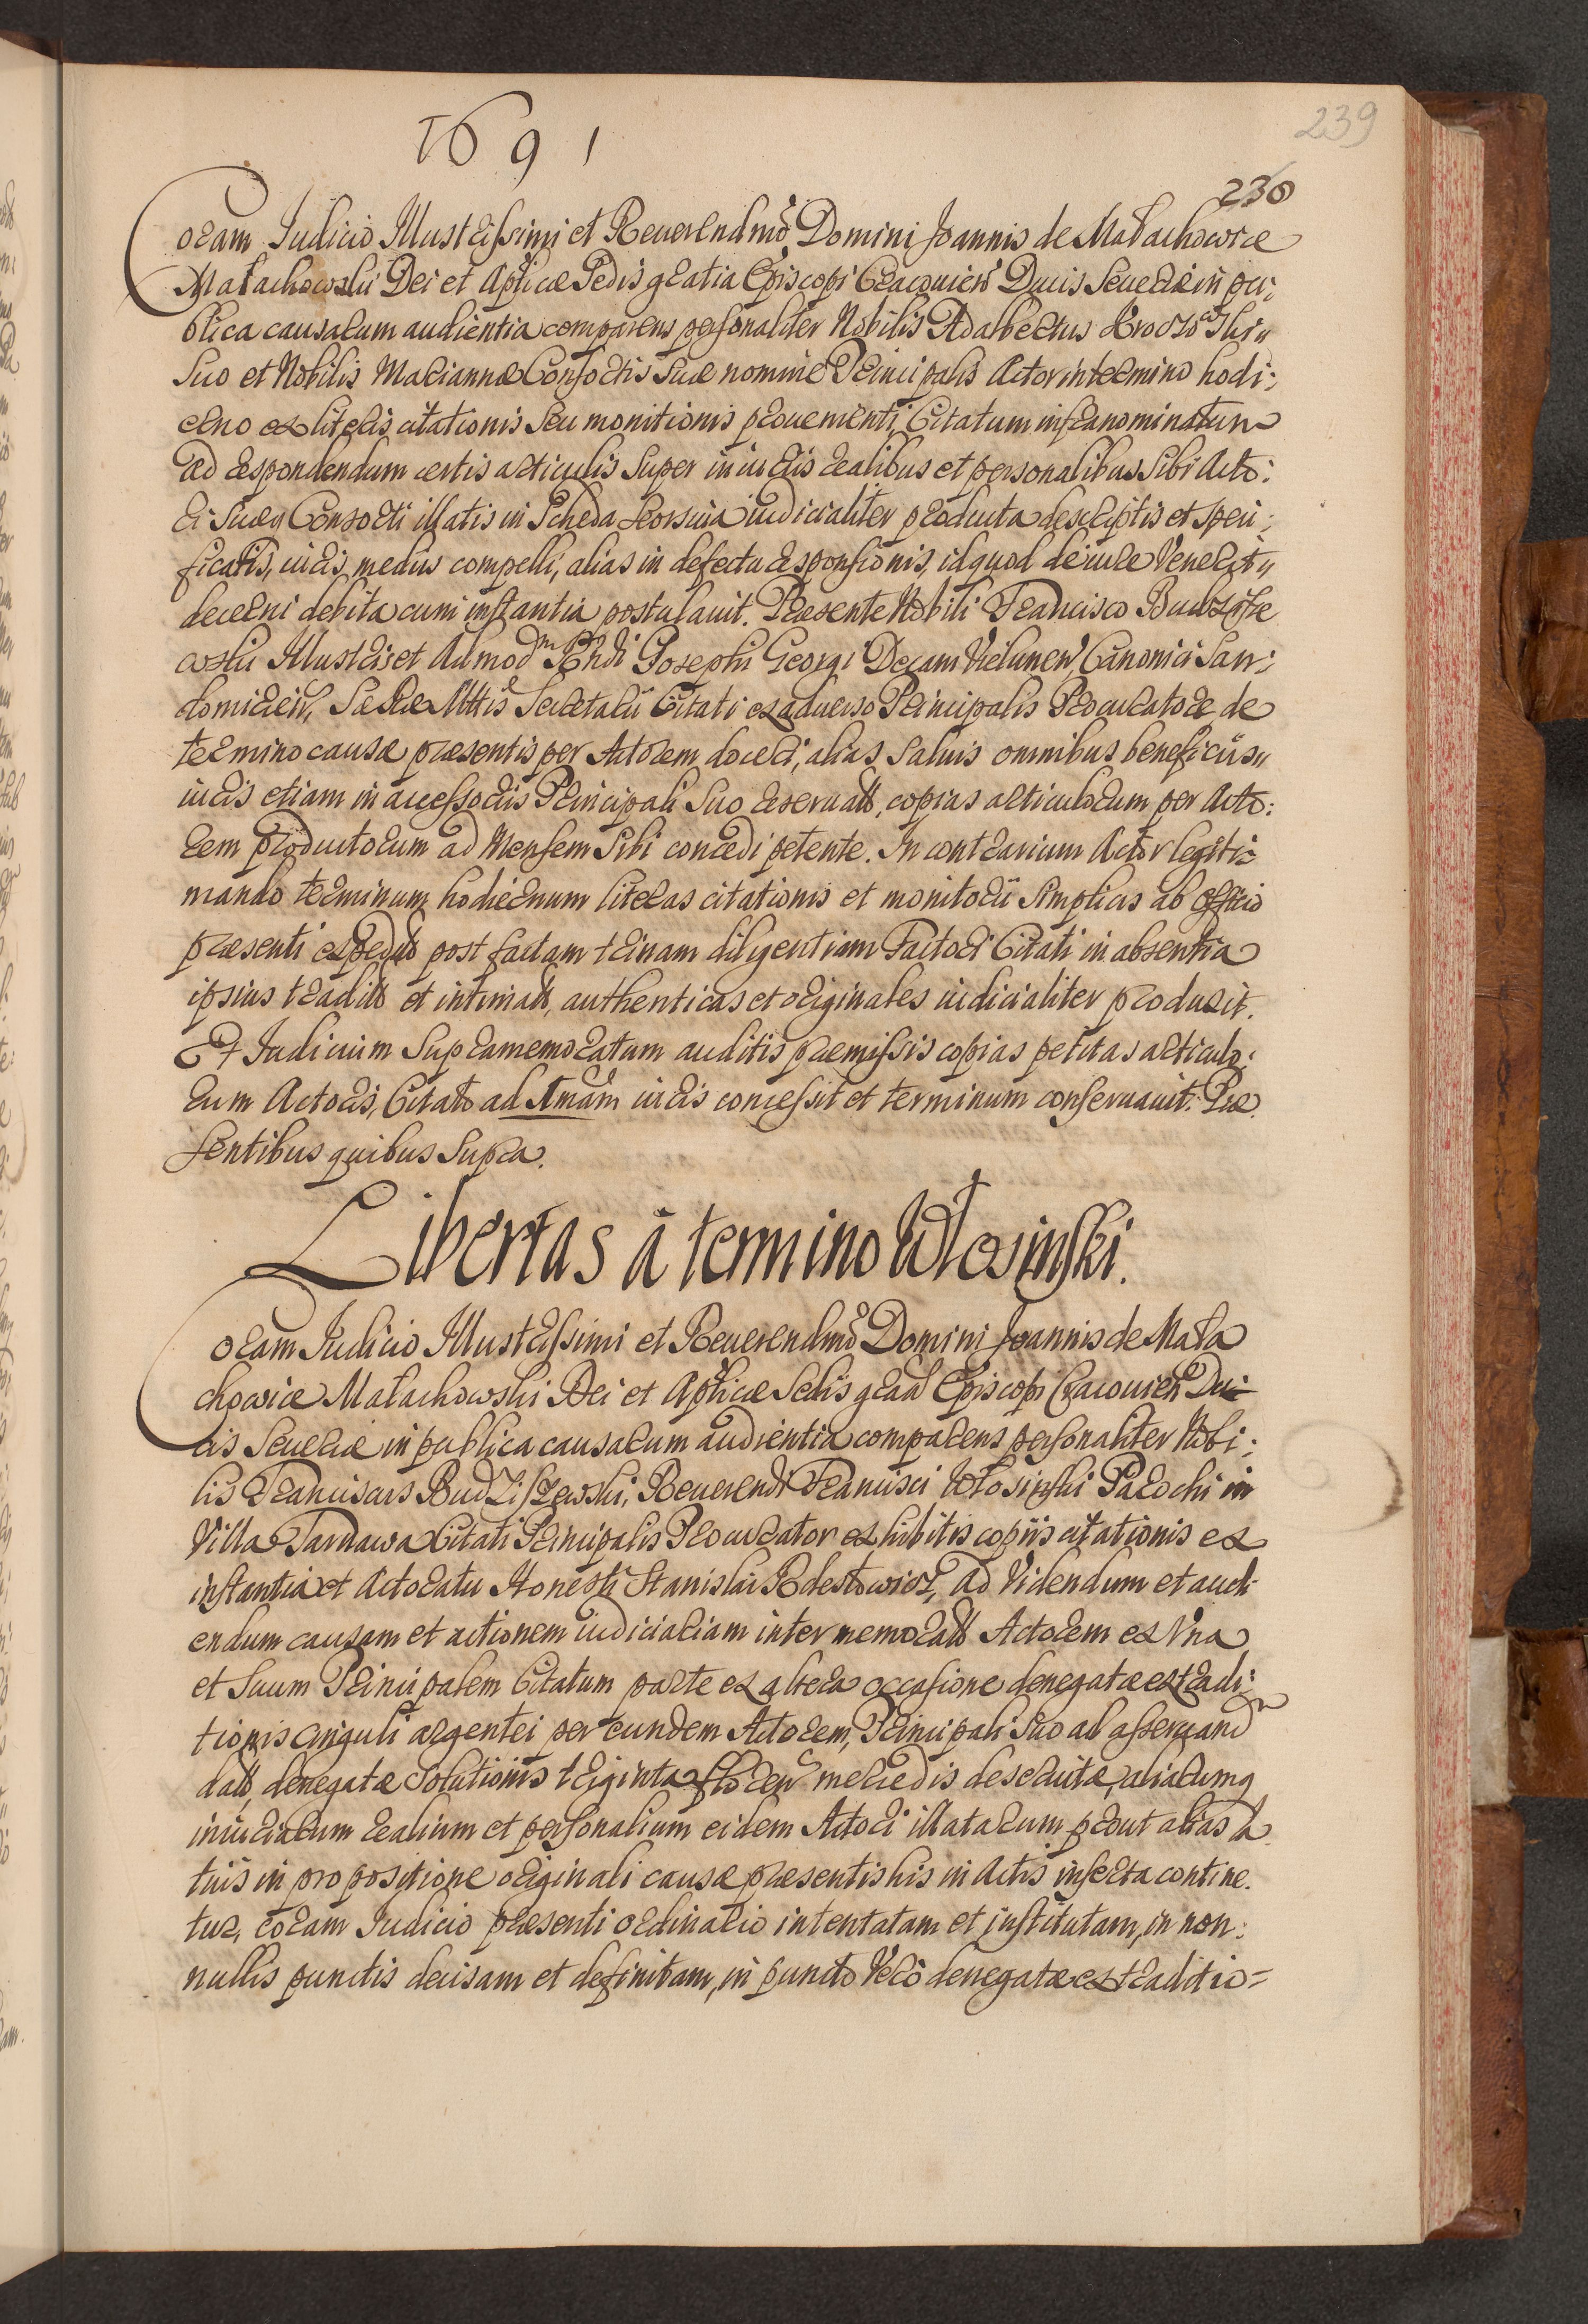 1691
239
230
Coram Iudicio Illustrissimi et Reuerendmi Domini Joannis de Małachowice
Małachowski Dei et Aplicæ Sedis gratia Episcopi Cracouien Ducis Seueriæ in pu:
blica causarum audientia comparens personaliter Nobilis Adalbertus
Suo et Nobilis Mariannæ Consortis Suæ nomine Principalis Actor in termino hodi:
erno ex literis citationis Seu monitionis prouenienti Citatum infranominatum
ad respondendum certis articulis Super iniuriis realibus et personalibus Sibi Acto:
ri Suæq Consorti illatis in Scheda Seorsiua iudicialiter producta descriptis et speci:
ficatis, iuris, mediis compelli, alias in defectu responsionis, id quod de iure Venerit
decerni debita cum instantia postulauit. Præsente Nobili Francisco Budzisze
wski Illustris et Admodm Rndi Josephi Georgi Decani Vielunen Canonici San:
domirien, Sæ Ræ Mttis Secretarii Citati ex aduerso Principalis Procuratore de
termino causæ præsentis per Actorem doceri, alias Saluis omnibus beneficiis
iuris etiam in accessoriis Principali Suo reseruatt, copias articulorum per Acto:
rem productorum ad Mensem Sibi concedi petente. In contrarium Actor legiti=
mando terminum hodiernum literas citationis et monitorii Simplicis ab officio
præsenti expedtt post factam trinam diligentiam Factori Citati in absentia
ipsius traditt et intimatt, authenticas et originales iudicialiter produxit.
Et Iudicium Supramemoratum auditis præmissis copias petitas articulo:
rum Actoris, Citato ad Amam iuris concessit et terminum conseruauit. Præ
sentibus quibus Supra.
Libertas à termino Włosinski.
Coram Iudicio Illustrissimi et Reuerendmi Domini Joannis de Mała
chowice Małachowski Dei et Aplicæ Sedis graa Episcopi Cracouien Du=
cis Seueriæ in publica causarum audientia comparens personaliter Nobi:
lis Franciscus Budziszewski, Reuerendi Francisci Włosinski Parochi in
Villa Tarnawa Citati Principalis Procurator exhibitis copiis citationis ex
instantia et Actoratu Honesti Stanislai ad Videndum et audi
endum causam et actionem iudiciariam inter memoratt Actorem ex Vna
et Suum Principalem Citatum parte ex altera occasione denegatæ extradi:
tionis cinguli argentei per eundem Actorem, Principali Suo ad asseruandm
datt, denegatæ Solutionis triginta floren mercedis deseruitæ, aliarumq
iniuriarum realium et personalium eidem Actori illatarum prout alias la
tius in propositione originali causæ præsentis his in Actis inserta contine.
tur, coram Iudicio præsenti ordinario intentatam et institutam, in non:
nullis punctis decisam et definitam, in puncto Vero denegatæ extraditio=